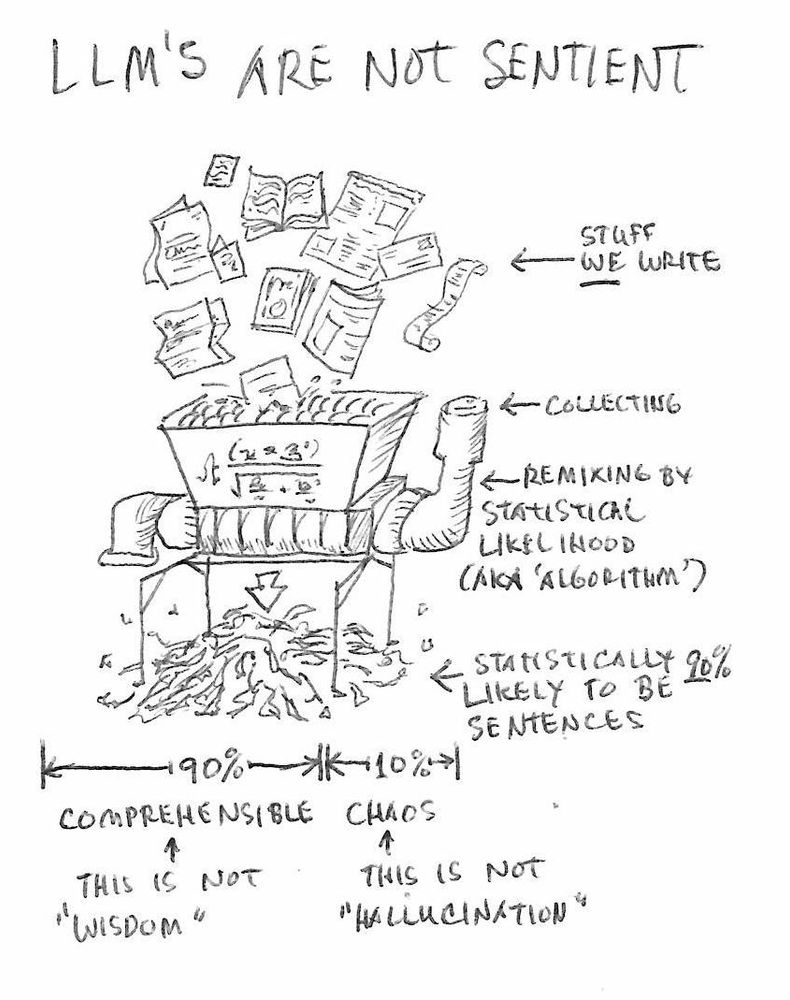 LLM'S ARE NOT SENTIENT
STUFF
WE WRITE
COLLECTING
REMIXING BY
STATISTICAL
LIKELIHOOD
(AKA 'ALGORITHM')
STATISTICALLY 90%
LIKELY TO BE
SENTENCES
90%
10%
COMPREHENSIBLE
CHAOS
THIS IS NOT
"WISDOM"
THIS IS NOT
"HALLUCINATION"